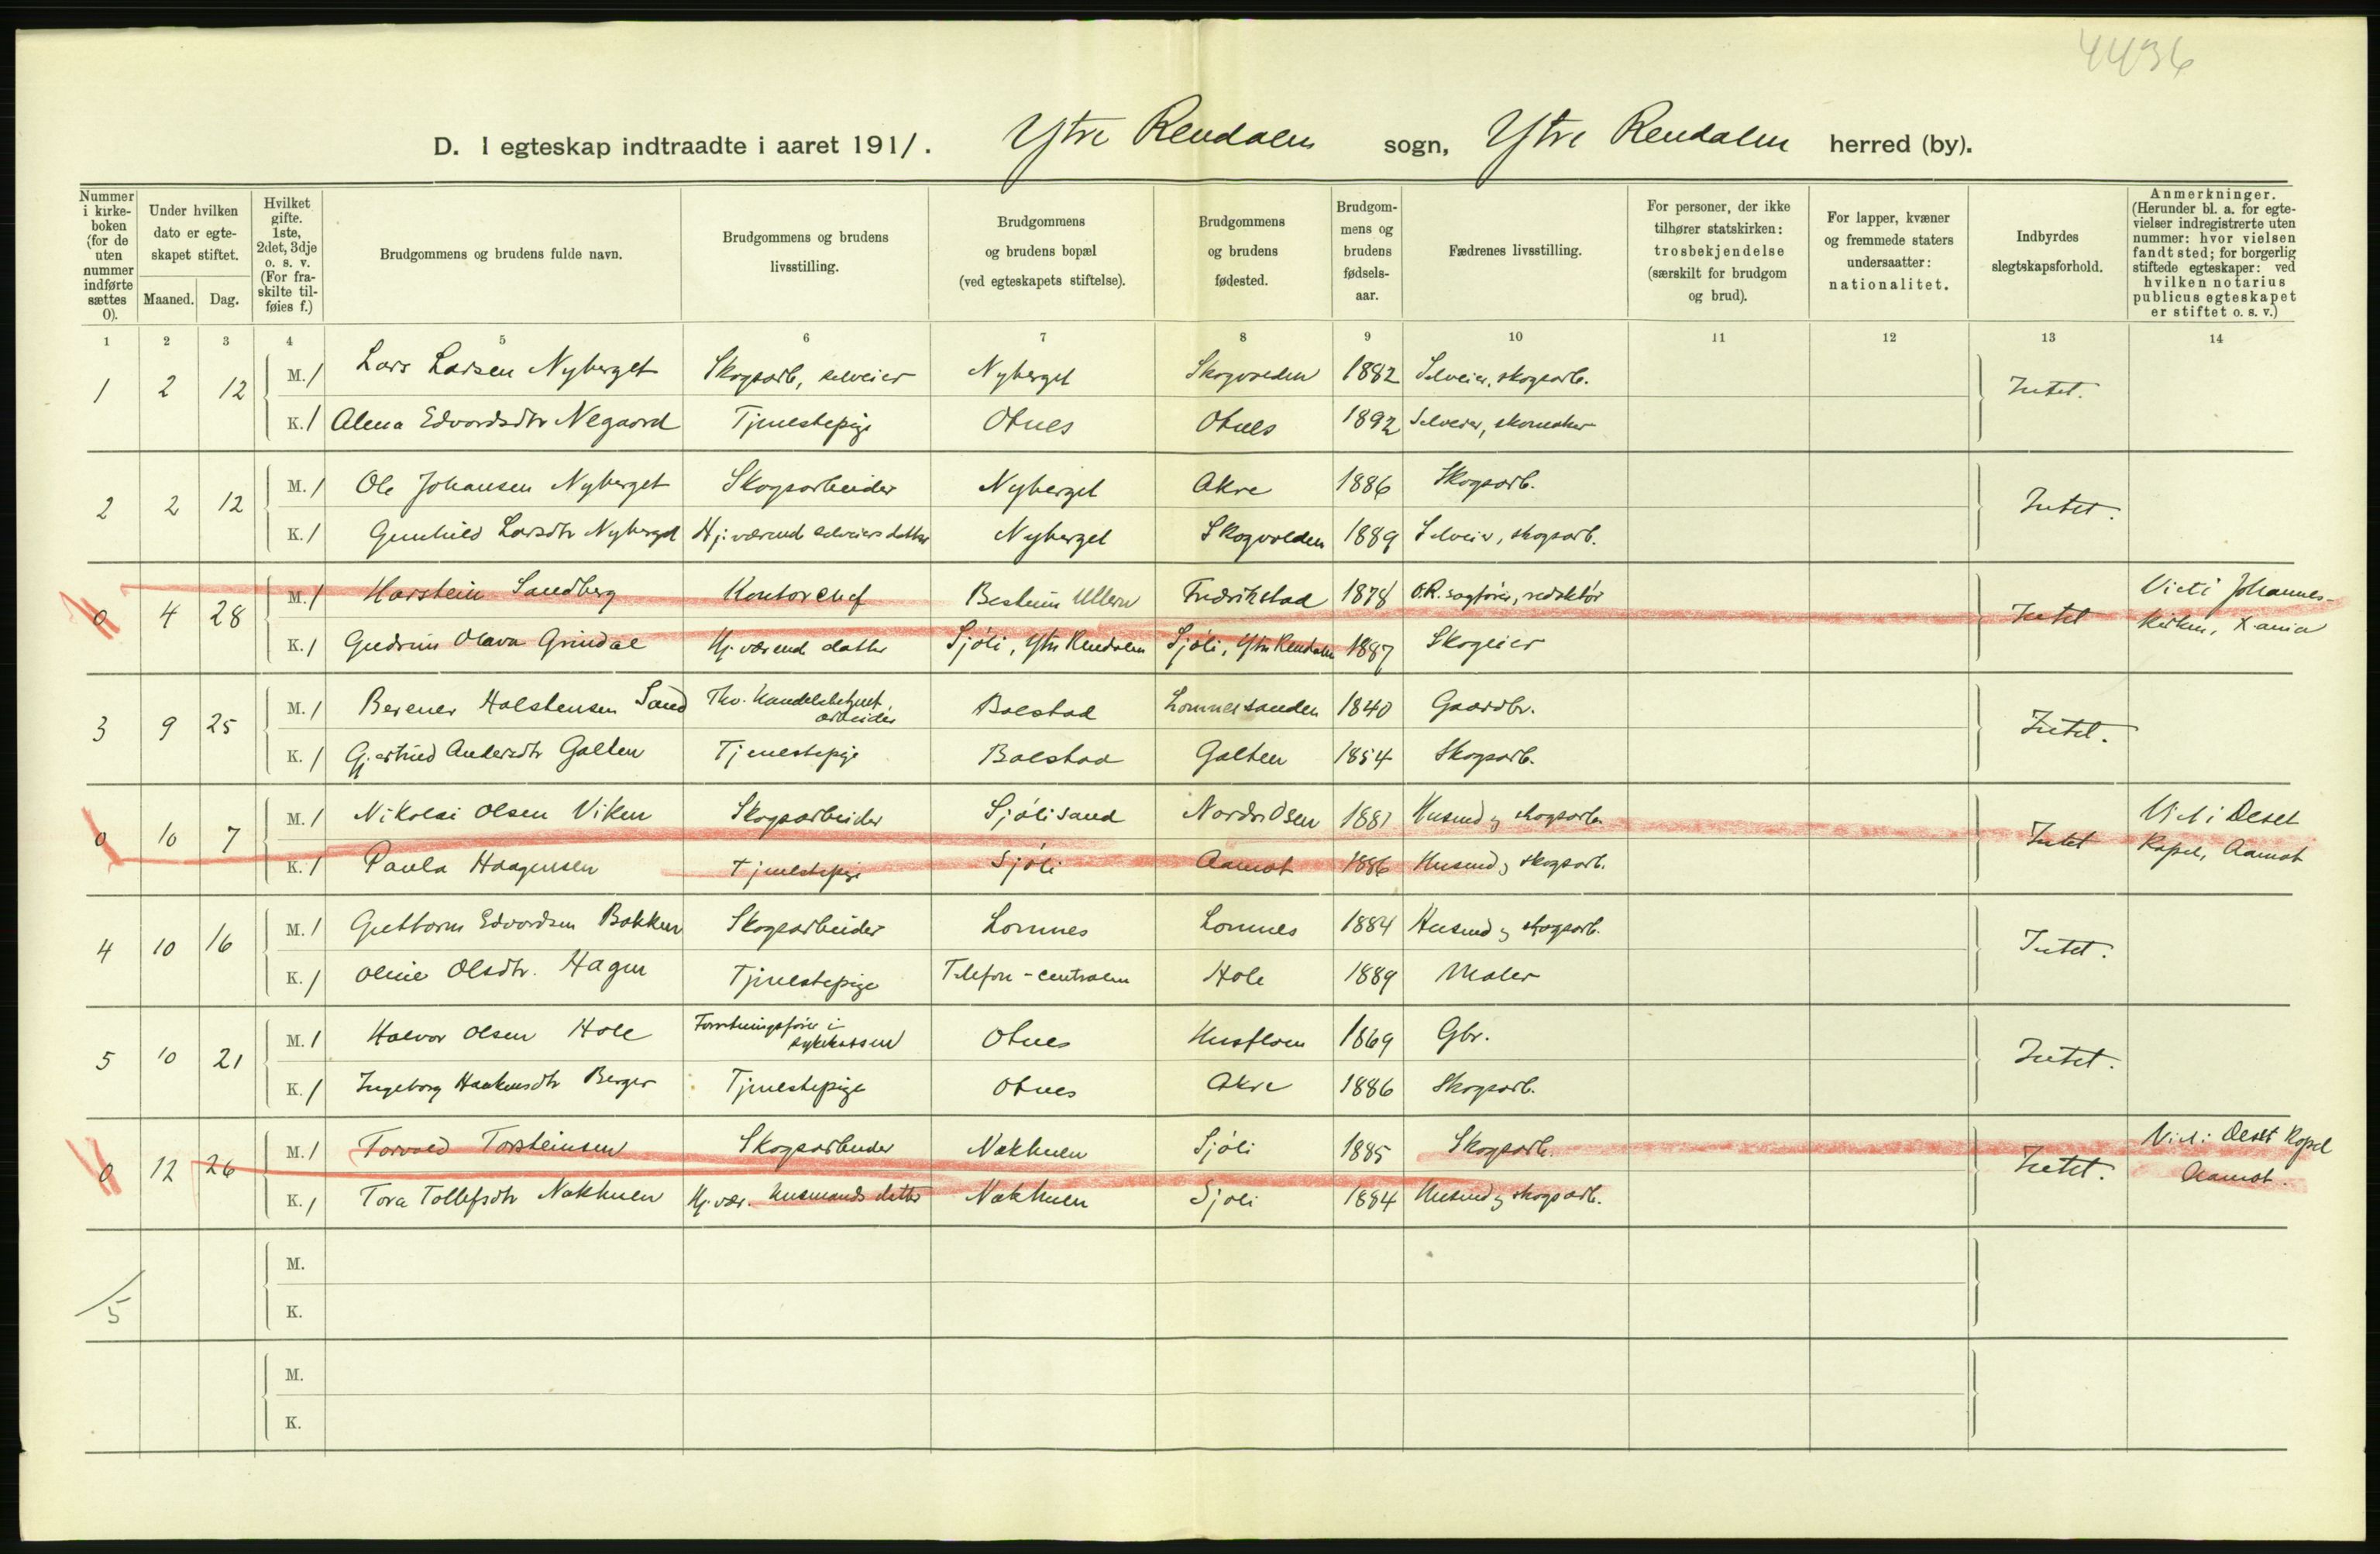 4436
D. I egteskap indtraadte i aaret 1911. Ytre Rendalen sogn, Ytre Rendalen herred (by).
Nummer i kirke-boken (for de uten nummer indførte sættes 0).
Under hvilken dato er egte-skapet stiftet.
Maaned. Dag.
Hvilket gifte. 1ste, 2det, 3dje o. s. v. (For fra-skilte til-føies f.)
Brudgommens og brudens fulde navn.
Brudgommens og brudens livsstilling.
Brudgommens og brudens bopæl (ved egteskapets stiftelse).
Brudgommens og brudens fødested.
Brudgom-mens og brudens fødsels-aar.
Fædrenes livsstilling.
For personer, der ikke tilhører statskirken: trosbekjendelse (særskilt for brudgom og brud).
For lapper, kvæner og fremmede staters undersaatter: nationalitet.
Indbyrdes slegtskapsforhold.
Anmerkninger. (Herunder bl. a. for egte-vielser indregistrerte uten nummer: hvor vielsen fandt sted; for borgerlig stiftede egteskaper: ved hvilken notarius publicus egteskapet er stiftet o. s. v.)
1 2 3 4 5 6 7 8 9 10 11 12 13 14
1 2 12 M. 1 Lars Larsen Nyberget Skogsarb, selveier Nyberget Skogvolden 1882 Selveier, skogsarb. Intet.
K. 1 Alena Edvardsdtr Negaard Tjenestepige Otnes Otnes 1892 Selveier, skomaker
2 2 12 M. 1 Ole Johansen Nyberget Skogsarbeider Nyberget Akre 1886 Skogsarb. Intet.
K. 1 Gunhild Larsdtr Nyberget Hj. værend selveiers datter Nyberget Skogvolden 1889 Selveier, skogsarb.
0 4 28 M. 1 Harstein Sandberg Kontorchef Bestum Ullern Fredrikstad 1878 O.R. sagfører, redaktør Intet Viet i Johannes-
K. 1 Gudrun Olava Grindal Hj. værend datter Sjøli, Ytre Rendalen Sjøli, Ytre Rendalen 1887 Skogeier kirken, X.ania
3 9 25 M. 1 Berener Halstensen Sand Thv. Handelsbetjent, arbeider Bolstad Lomnessanden 1840 Gaardbr. Intet.
K. 1 Gjertrud Andersdtr Galten Tjenestepige Bolstad Galten 1854 Skogsarb.
0 10 7 M. 1 Nikolai Olsen Viken Skogsarbeider Sjølisand Nordre Osen 1881 Husmd og skogsarb. Intet Viet i Deset
K. 1 Paula Haagensen Tjenestepige Sjøli Aamot 1886 Husmd og skogsarb. Kapel, Aamot
4 10 16 M. 1 Guttorm Edvardsen Bakken Skogsarbeider Lomnes Lomnes 1884 Husmd og skogsarb. Intet.
K. 1 Oline Olsdtr. Hagen Tjenestepige Telefon-centralen Hole 1889 Maler
5 10 21 M. 1 Halvor Olsen Hole Forretningsfører i sykekassen Otnes Husfloen 1869 Gbr. Intet.
K. 1 Ingeborg Haakensdtr Berger Tjenestepige Otnes Akre 1886 Skogsarb.
0 12 26 M. 1 Torvald Torsteinsen Skogsarbeider Nakkuen Sjøli 1885 Skogsarb. Intet. Viet i Deset Kapel
K. 1 Tora Tollefsdtr Nakkuen Hj. vær. husmands datter Nakkuen Sjøli 1884 Husmd og skogsarb. Aamot.
M.
5
K.
M.
K.